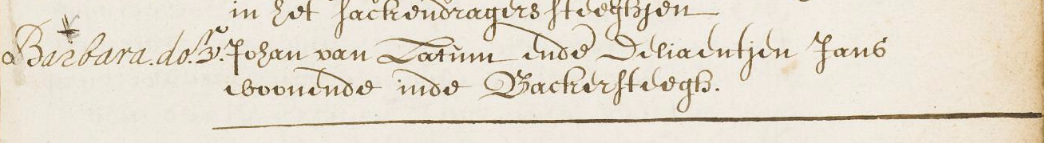 in het sackendragers steeghjen
Barbara. do. 3. Johan van Latum ende Deliaentjen Jans
woonende inde Backersteegh.